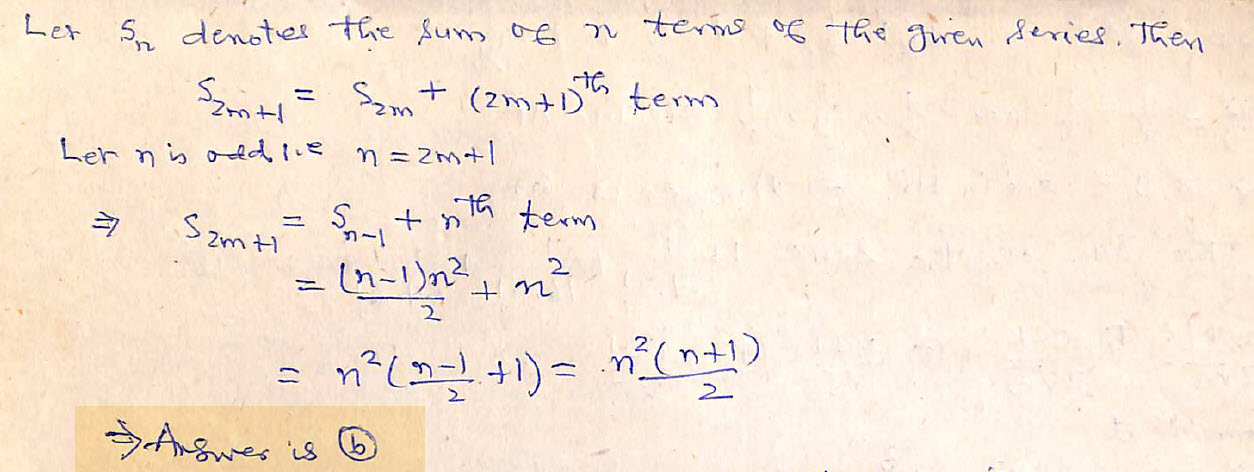 Let Sₙ denotes the sum of n terms of the given series. Then
S₂ₘ₊₁ = S₂ₘ + (2m+1)ᵗʰ term
Let n is odd i.e n = 2m+1
⇒ S₂ₘ₊₁ = Sₙ₋₁ + nᵗʰ term
= (n-1)n²/2 + n²
= n²((n-1)/2 + 1) = n²(n+1)/2
⇒ Answer is ⓑ